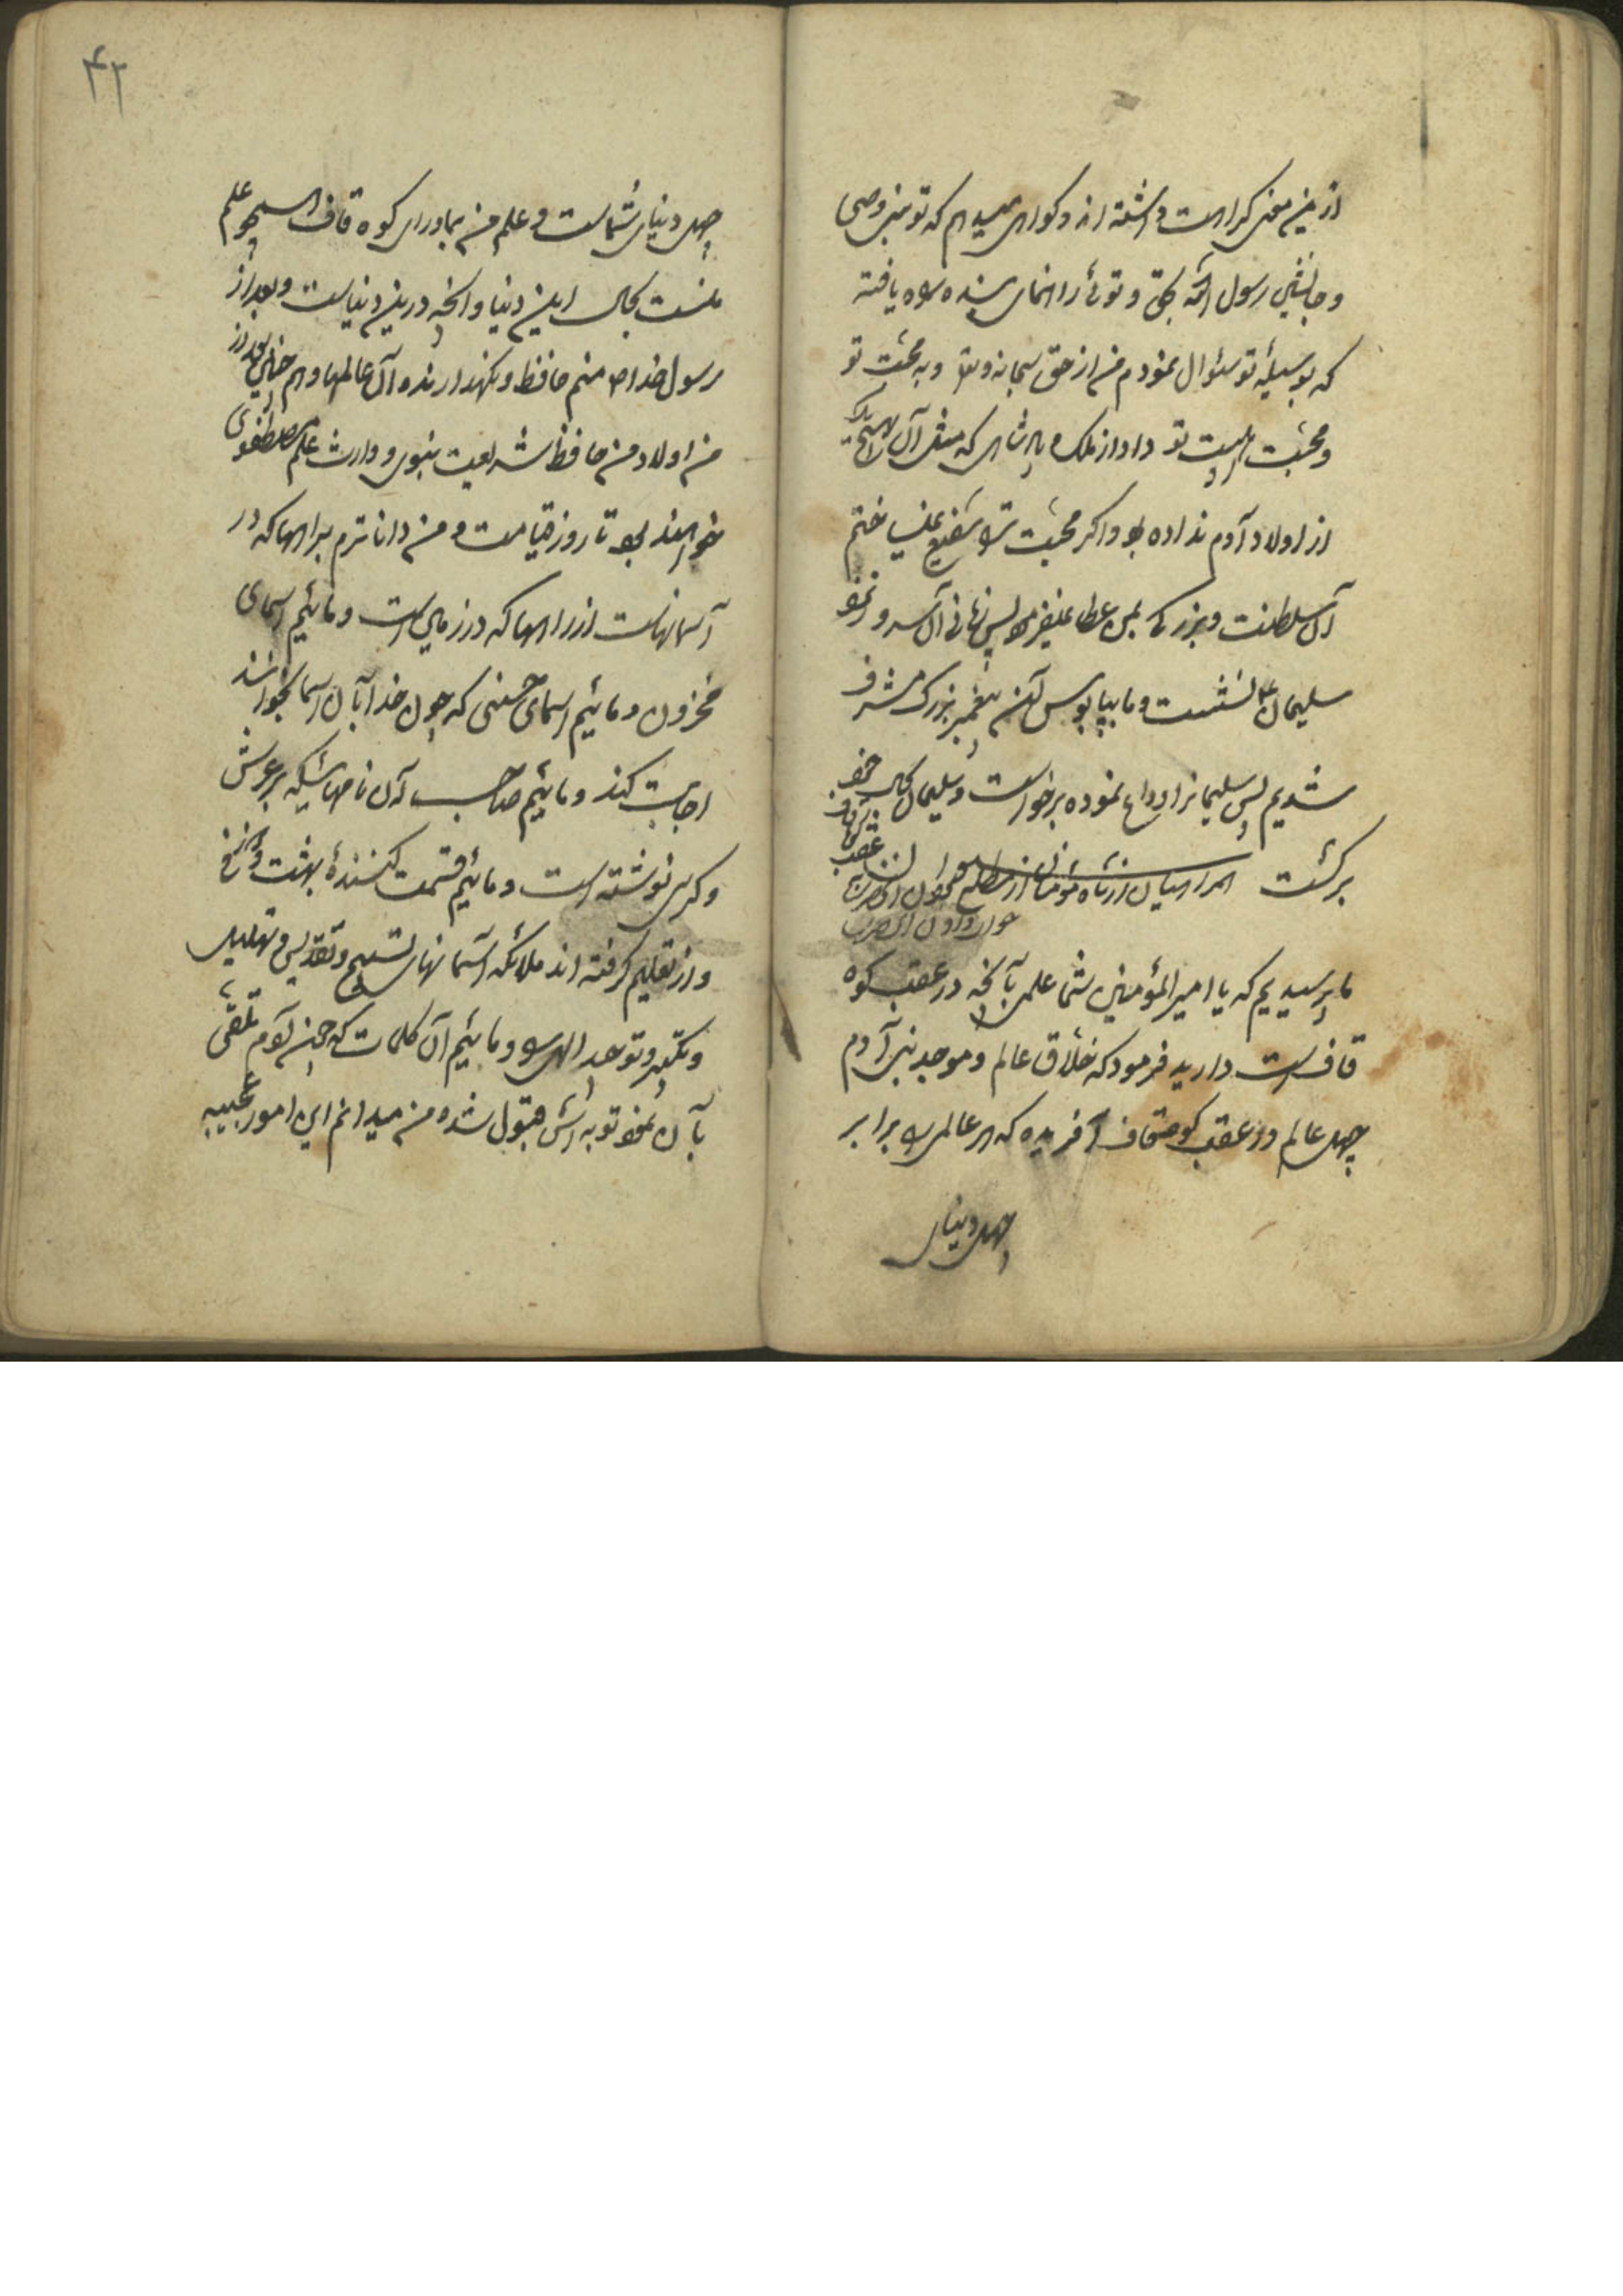 ازین معنی کراهت داشته اند و کواهی میدهم که تو نبی وصی
و جانشین رسول الله بحق و توئی راهنمای بنده راه یافته
که بوسیلهٔ تو سئوال نمودم من از حق سبحانه و تعالی و به محبت تو
و محبت اهلبیت تو داد از ملک و پادشاهی که مثل آن هیچیک را
از اولاد آدم نداده بود و اگر محبت ترا شفیع نمیساختم
آن سلطنت و بزرگی بمن عطا نمیفرمود پس زمانی آن سرور نزد
سلیمان ع نشست و ما بپابوس آن پیغمبر بزرک مشرف
شدیم پس سلیمانرا وداع نموده برخواست و سلیمان بحال خود
برکشت همراهیان از شاه مؤمنان از مطلع
ما پرسیدیم که یا امیرالمؤمنین شما علمی بآنچه در عقب کوه
قاف است دارید فرمود که خلاق عالم و موجد بنی آدم
چهل عالم در عقب کوه قاف آفریده که هر عالمی را برابر
چهل دنیای
۴۲
چهل دنیای شماست و علم من بماورای کوه قاف همچو علم
منست بحال این دنیا و آنچه درین دنیاست و بعد از
رسول خدا ص منم حافظ و نکهدارنده آن عالمها و هم چنین بعد از
من اولاد من حافظ شریعت نبوی و وارث علم مصطفوی
خواهند بود تا روز قیامت و من داناترم براهها که در
آسمانهاست از راهها که در زمین است و مائیم اسمای
مخزون و مائیم اسمای حسنی که چون خدا را بآن اسما بخوانند
اجابت کند و مائیم صاحب آن نامهائیکه بر عرش
و کرسی نوشته است و مائیم قسمت کنندهٔ بهشت و دوزخ
و از ما تعلیم کرفته اند ملائکه آسمانها تسبیح و تقدیس و تهلیل
و تکبیر و توحید الهی را و مائیم آن کلمات که چون آدم تلقی
بآن نمود توبه اش قبول شده من میدانم این امور عجیبه